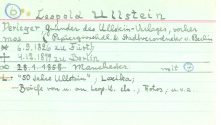 Leopold Ullstein
Verleger, Gründer des Ullstein-Verlages, vorher
Papiergroßhdl. & Stadtverordneter v. Berlin
* 6.9.1826 zu Fürth
† 4.12.1899 zu Berlin
∞ 28.1.1858 Manchester mit
L. "50 Jahre Ullstein",
Briefe von u. an Leop. U. etc., Fotos, u.v.a.